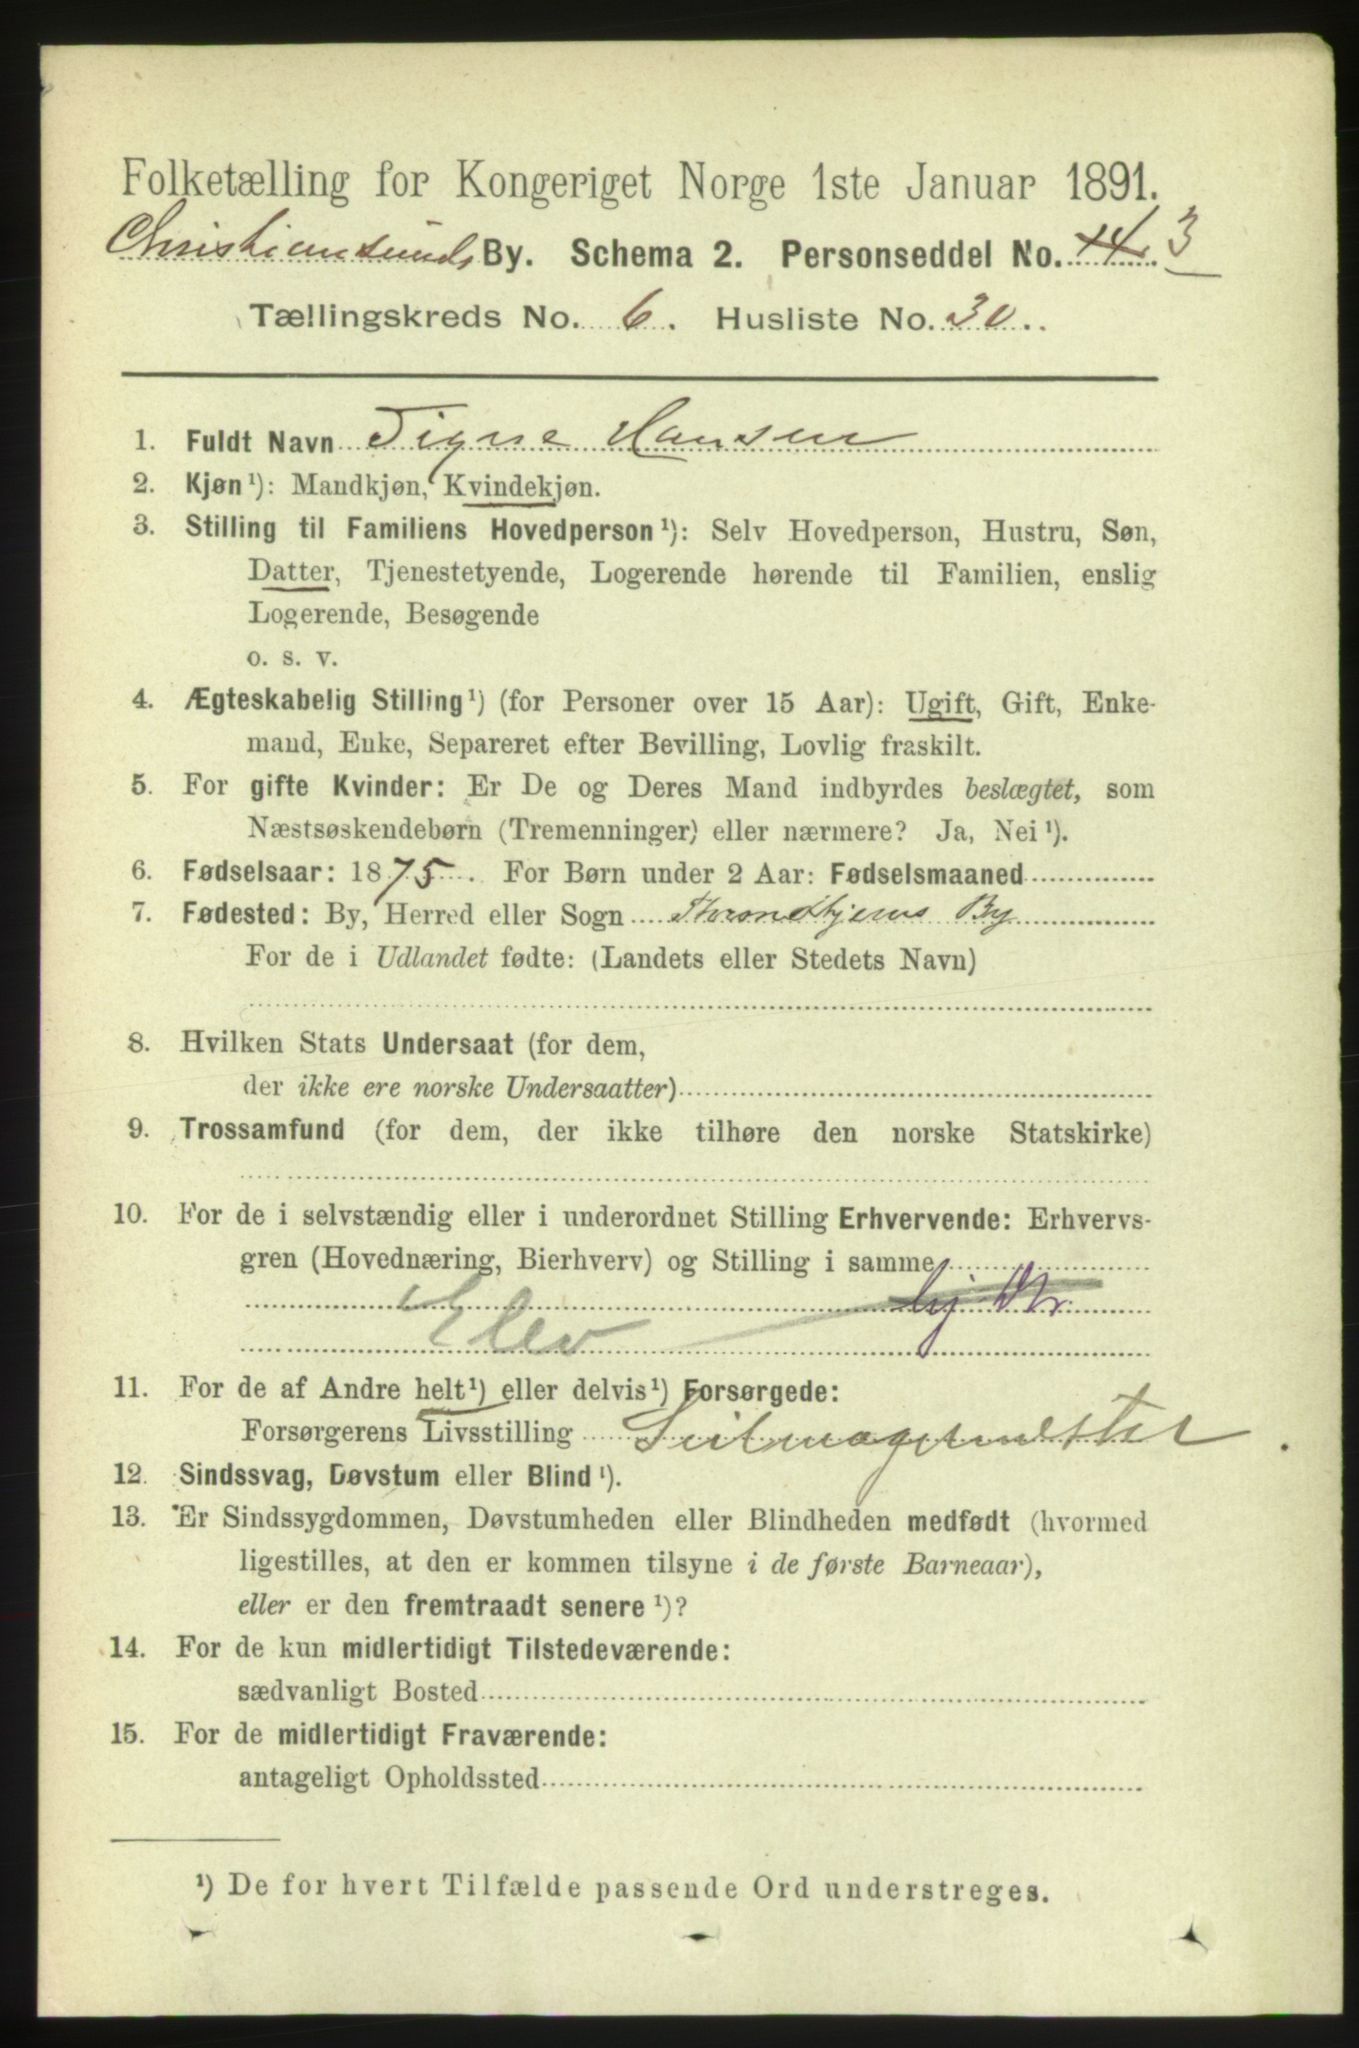 Folketælling for Kongeriget Norge 1ste Januar 1891.
Christiansunds By. Schema 2. Personseddel No. 14. 3
Tællingskreds No. 6. Husliste No. 30.
1. Fuldt Navn Signe Hansen
2. Kjøn ¹): Mandkjøn, Kvindekjøn.
3. Stilling til Familiens Hovedperson ¹): Selv Hovedperson, Hustru, Søn,
Datter, Tjenestetyende, Logerende hørende til Familien, enslig
Logerende, Besøgende
o. s. v.
4. Ægteskabelig Stilling ¹) (for Personer over 15 Aar): Ugift, Gift, Enke-
mand, Enke, Separeret efter Bevilling, Lovlig fraskilt.
5. For gifte Kvinder: Er De og Deres Mand indbyrdes beslægtet, som
Næstsøskendebørn (Tremenninger) eller nærmere? Ja, Nei ¹).
6. Fødselsaar: 1875. For Børn under 2 Aar: Fødselsmaaned
7. Fødested: By, Herred eller Sogn Throndhjems By
For de i Udlandet fødte: (Landets eller Stedets Navn)
8. Hvilken Stats Undersaat (for dem,
der ikke ere norske Undersaatter)
9. Trossamfund (for dem, der ikke tilhøre den norske Statskirke)
10. For de i selvstændig eller i underordnet Stilling Erhvervende: Erhvervs-
gren (Hovednæring, Bierhverv) og Stilling i samme
Elev
11. For de af Andre helt ¹) eller delvis ¹) Forsørgede:
Forsørgerens Livsstilling Seilmagermester.
12. Sindssvag, Døvstum eller Blind ¹).
13. Er Sindssygdommen, Døvstumheden eller Blindheden medfødt (hvormed
ligestilles, at den er kommen tilsyne i de første Barneaar),
eller er den fremtraadt senere ¹)?
14. For de kun midlertidigt Tilstedeværende:
sædvanligt Bosted
15. For de midlertidigt Fraværende:
antageligt Opholdssted
¹) De for hvert Tilfælde passende Ord understreges.